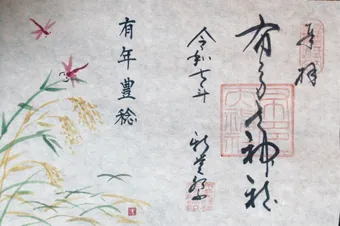 奉拝
有神社
令和七年
新嘗祭
有年豊稔